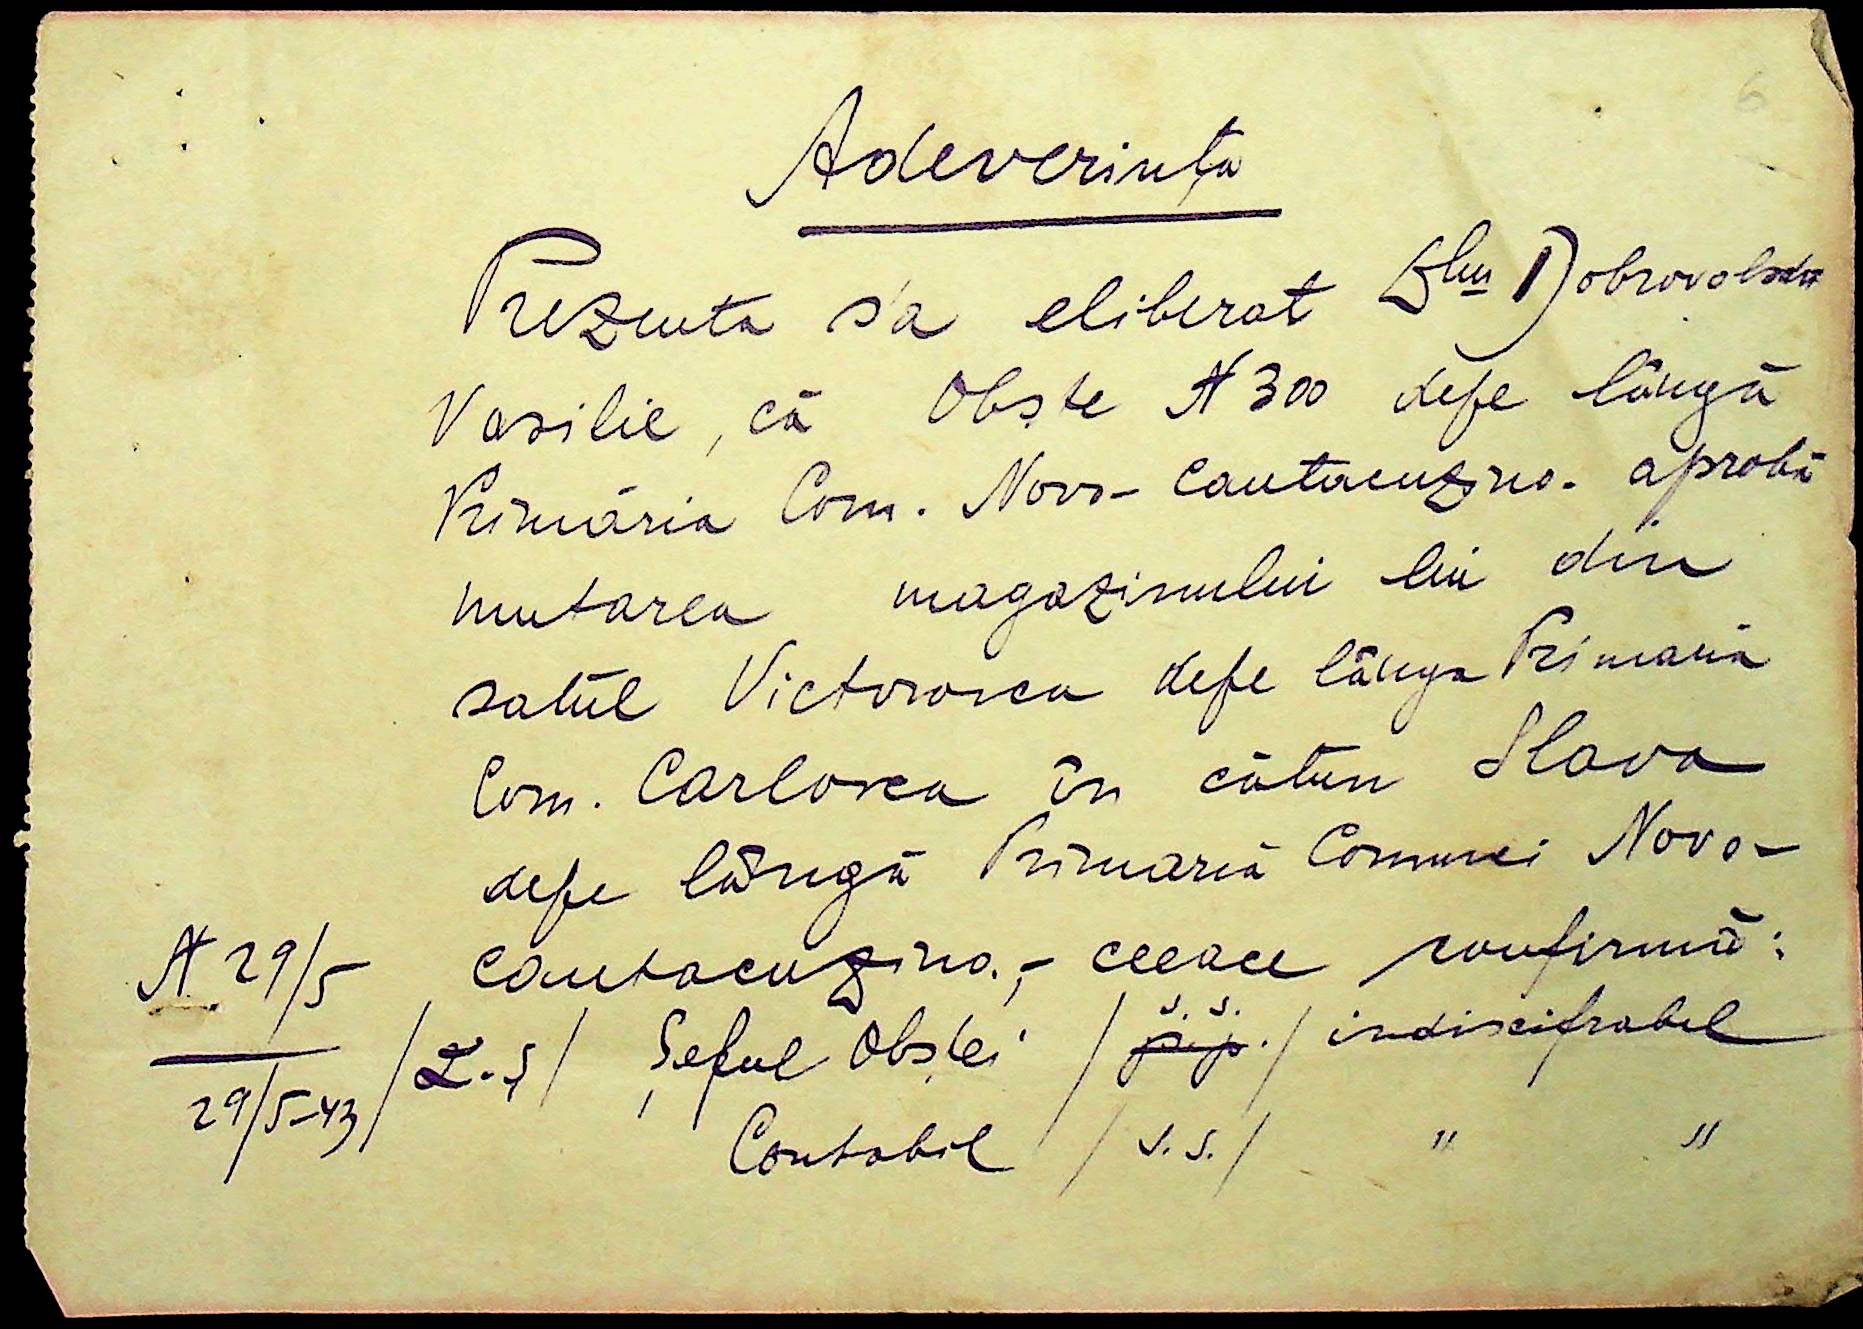 6
Adeverința
Prezenta s'a eliberat Dlui Dobrovolschi
Vasilie, că Obște N 300 depe lângă
Primăria Com. Novo-Cantacuzino. aprobă
mutarea magazinului lui din
satul Victorovca depe lânga Primaria
Com. Carlovca în cătun Slava
depe lângă Primaria Comunei Novo-
Cantacuzino,- ceeace confirmă:
N 29/5
29/5-43
/L.Ș/ Șeful Obștei /s.s./ indiscifrabil
Contabil /s.s./ " "